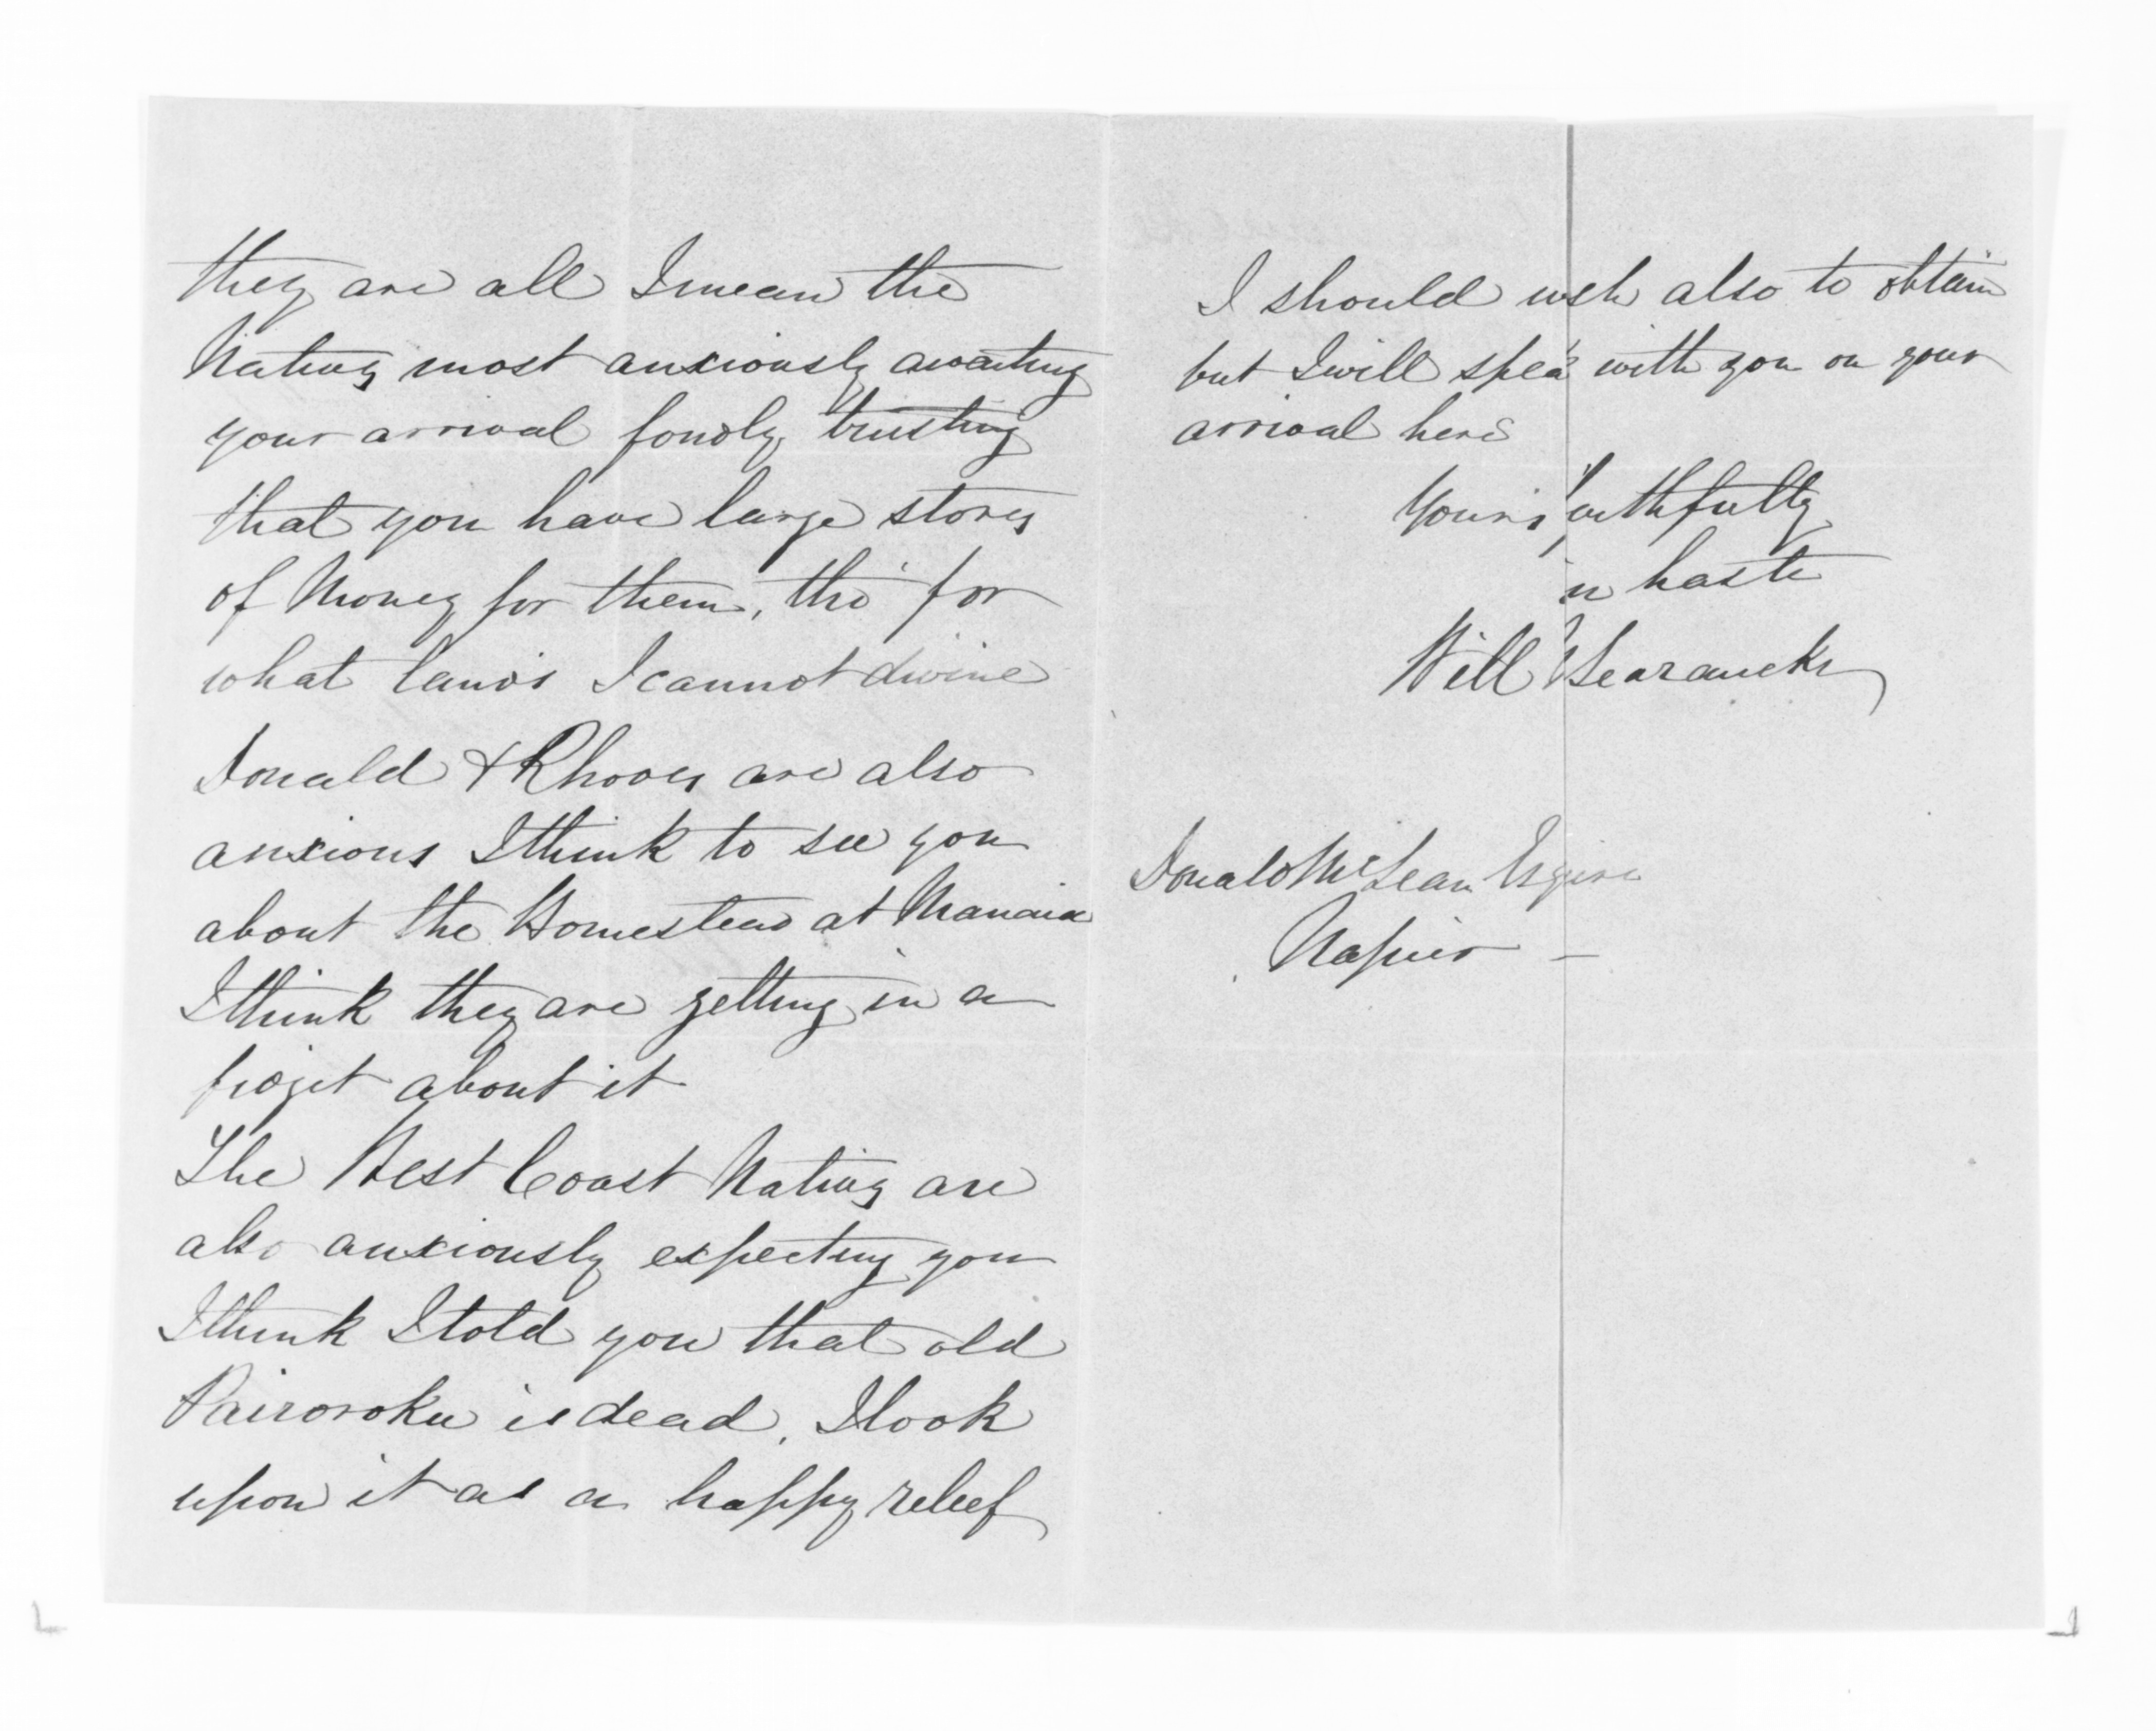 they are all I mean the
Natives most anxiously awaiting
your arrival fondly trusting
that you have large stores
of Money for them, tho' for
what lands I cannot divine
Donald & Rhodes are also
anxious I think to see you
about the Homestead at Manaia
I think they are getting in a
fidget about it
The West Coast Natives are
also anxiously expecting you
I think I told you that old
Rairoroku is dead, I look
upon it as a happy relief
I should wish also to obtain
but I will speak with you on your
arrival here
Yours faithfully
in haste
Will Searancke
Donald McLean Esquire
Napier —